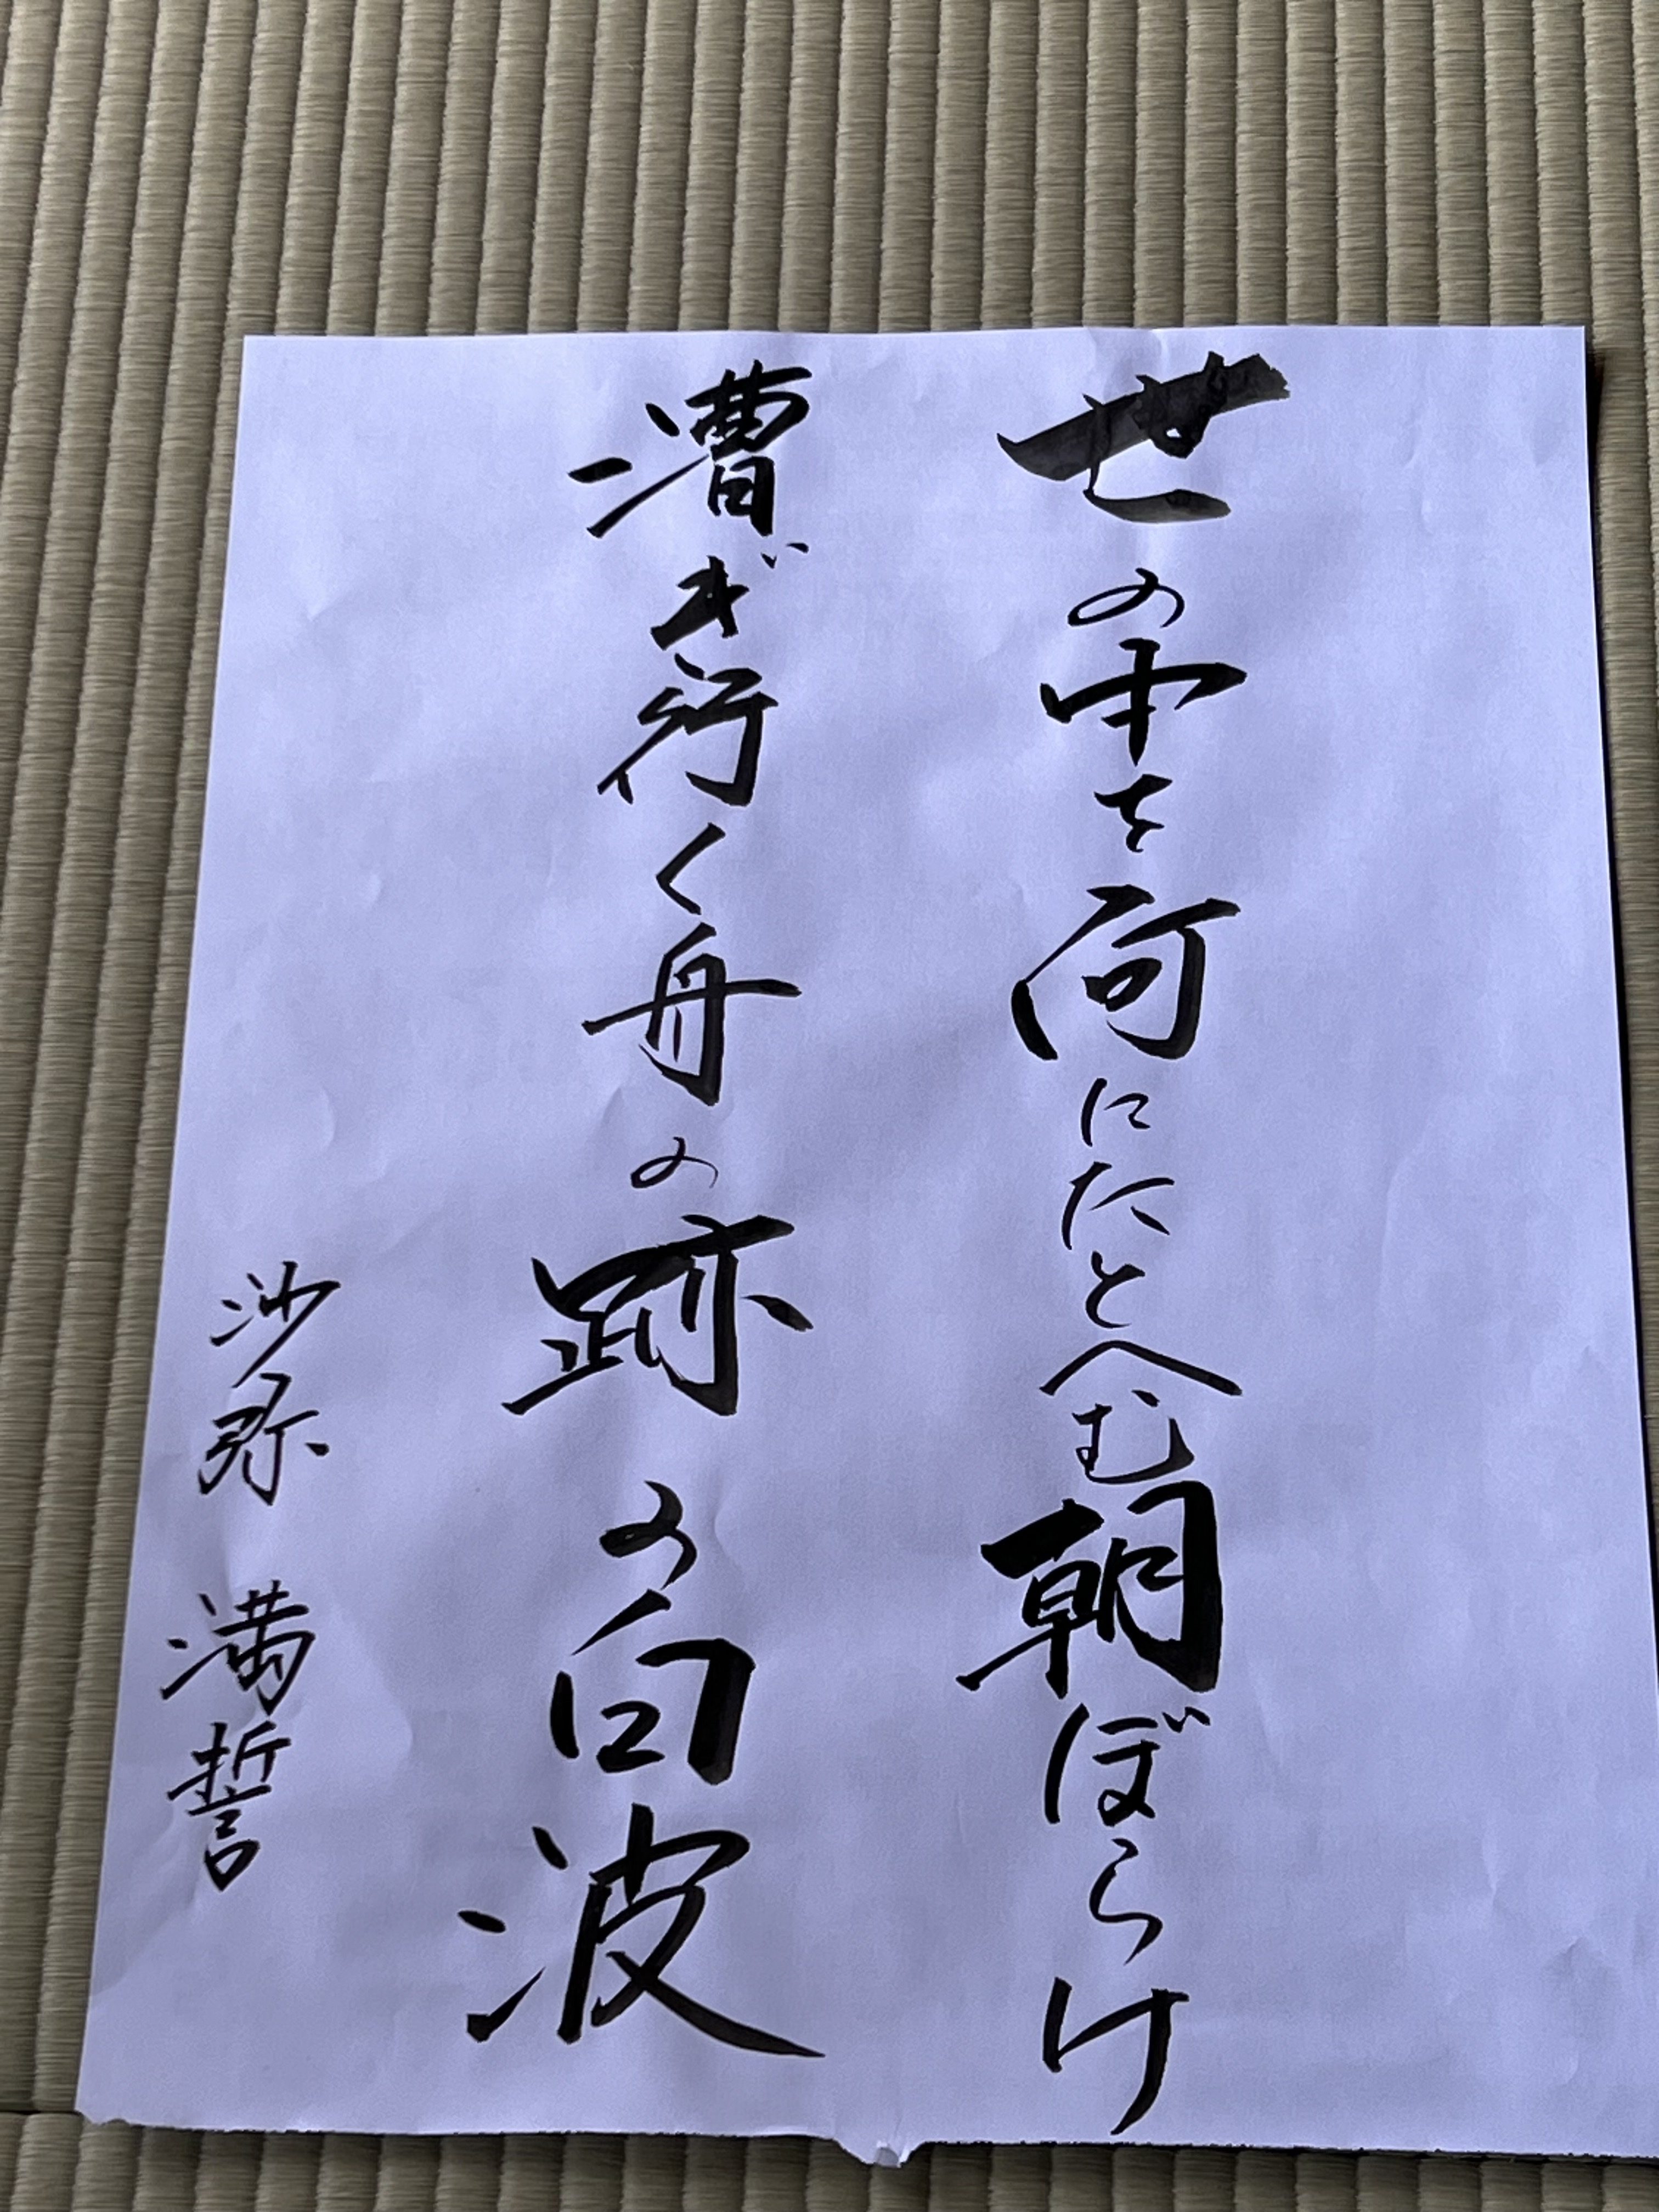 世の中を何にたとへむ朝ぼらけ
漕ぎ行く舟の跡の白波
沙弥 満誓